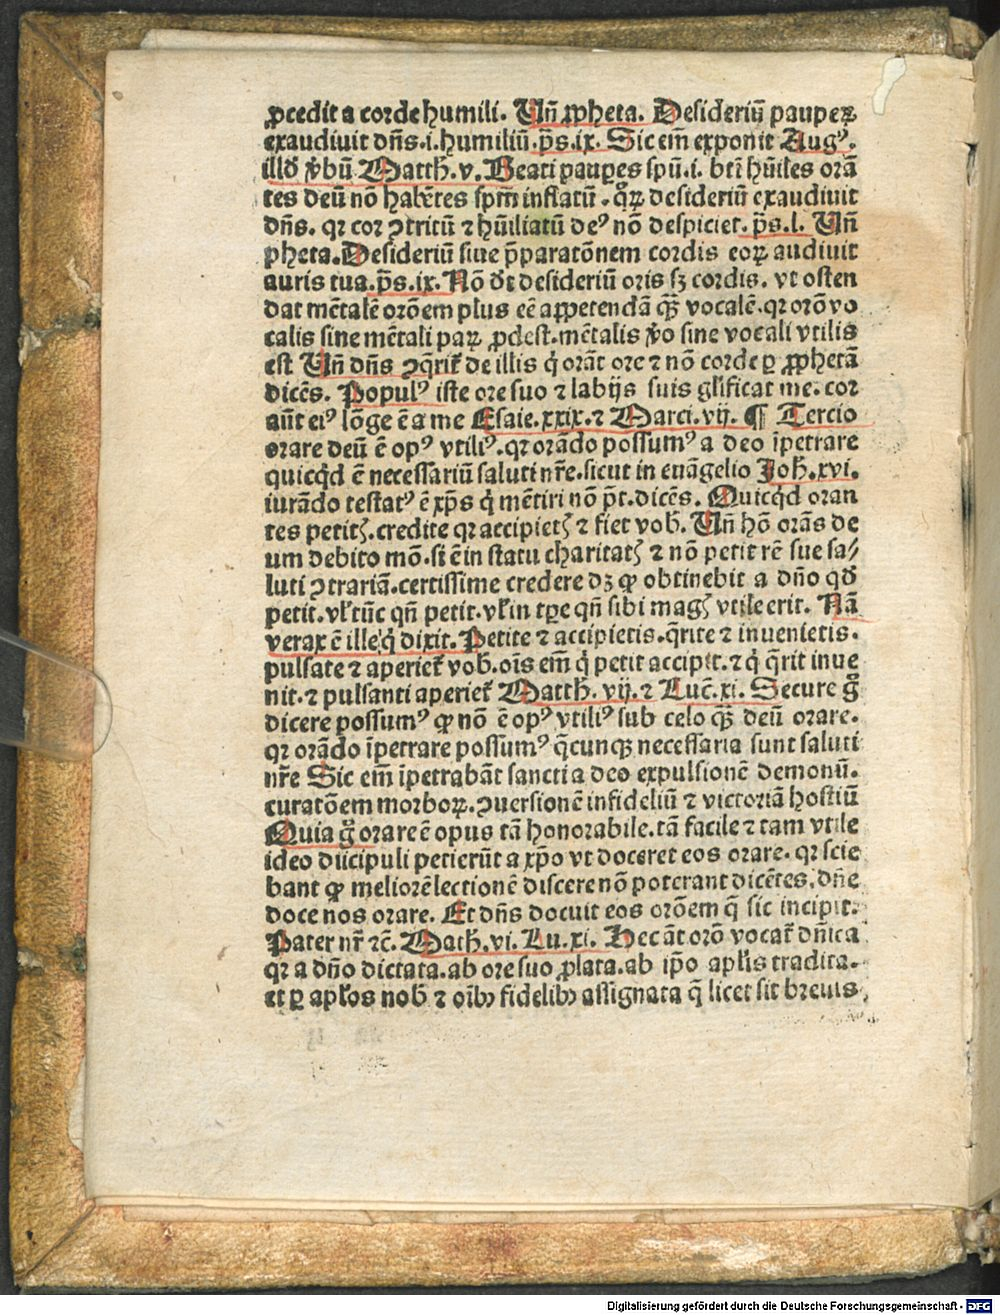 ꝓcedit a corde humili. Un̄ ꝓpheta. Desideriū pauperꝝ
exaudiuit dn̄s.i.humiliū.p̄s.ix. Sic em̄ exponit Augꝰ.
illđ v̄bū Matth̄.v. Beati pauꝑes spū.i. bt̄i hūiles orā
tes deū nō habētes spm̄ inflatū. q̊ꝝ desideriū exaudiuit
dn̄s. qr cor ꝯtritū ⁊ hūiliatū deꝰ nō despiciet. p̄s.l. Un̄
pheta. Desideriū siue p̄paratōnem cordis eoꝝ audiuit
auris tua.p̄s.ix. Nō dꝛ desideriū oris sꝫ cordis. vt osten
dat mētalē orōem plus eē appetendā qꝫ̄ vocalē. qr orō vo
calis sine mētali paꝝ ꝓdest. mētalis v̄o sine vocali vtilis
est Un̄ dn̄s ꝯq̄rit̄ de illis q̇ orāt ore ⁊ nō corde ꝑ ꝓphetā
dicēs. Populꝰ iste ore suo ⁊ labijs suis glīficat me. cor
aūt eiꝰ lōge ē a me Esaie.xxix.⁊ Marci.vij. ¶ Tercio
orare deū ē opꝰ vtiliꝰ. qr orādo possumꝰ a deo īpetrare
quicq̇d ē necessariū saluti nr̄e. sicut in euāgelio Joh̄.xvi.
iurādo testatꝰ ē xp̄s q̇ mētiri nō p̄t. dicēs. Quicq̇d oran
tes petitꝭ. credite qr accipietꝭ ⁊ fiet vob̄. Un̄ hō orās de
um debito mō. si ē in statu charitatꝭ ⁊ nō petit rē sue sa/
luti ꝯtrariā. certissime credere dꝫ ꝙ obtinebit a dn̄o qđ
petit. vl̄ tūc qn̄ petit. vl̄ in tꝑe qn̄ sibi magꝭ vtile erit. Nā
verax ē ille q̇ dixit. Petite ⁊ accipietis. q̄rite ⁊ inuenietis.
pulsate ⁊ aperiet̄ vob̄. oīs em̄ q̇ petit accipit. ⁊ q̇ q̄rit inue
nit. ⁊ pulsanti aperiet̄ Matth̄. vij. ⁊ Luc̄. xi. Secure g̊
dicere possumꝰ ꝙ nō ē opꝰ vtiliꝰ sub celo qꝫ̄ deū orare.
qr orādo īpetrare possumꝰ q̄cunqꝫ necessaria sunt saluti
nr̄e Sic em̄ īpetrabāt sancti a deo expulsionē demonū.
curatōem morboꝝ. ꝯuersionē infideliū ⁊ victoriā hostiū
Quia g̊ orare ē opus tā honorabile. tā facile ⁊ tam vtile
ideo discipuli petierūt a xp̄o vt doceret eos orare. qr scie
bant ꝙ meliorē lectionē discere nō poterant dicētes. dn̄e
doce nos orare. Et dn̄s docuit eos orōem q̄ sic incipit.
Pater nr̄ ⁊c̄. Math̄.vi. Lu.xi. Hec āt orō vocat̄ dn̄ica
qr a dn̄o dictata. ab ore suo ꝓlata. ab ip̄o apl̄is tradita.
et ꝑ apl̄os nob̄ ⁊ oībꝰ fidelibꝰ assignata q̄ licet sit breuis
Digitalisierung gefördert durch die Deutsche Forschungsgemeinschaft - DFG